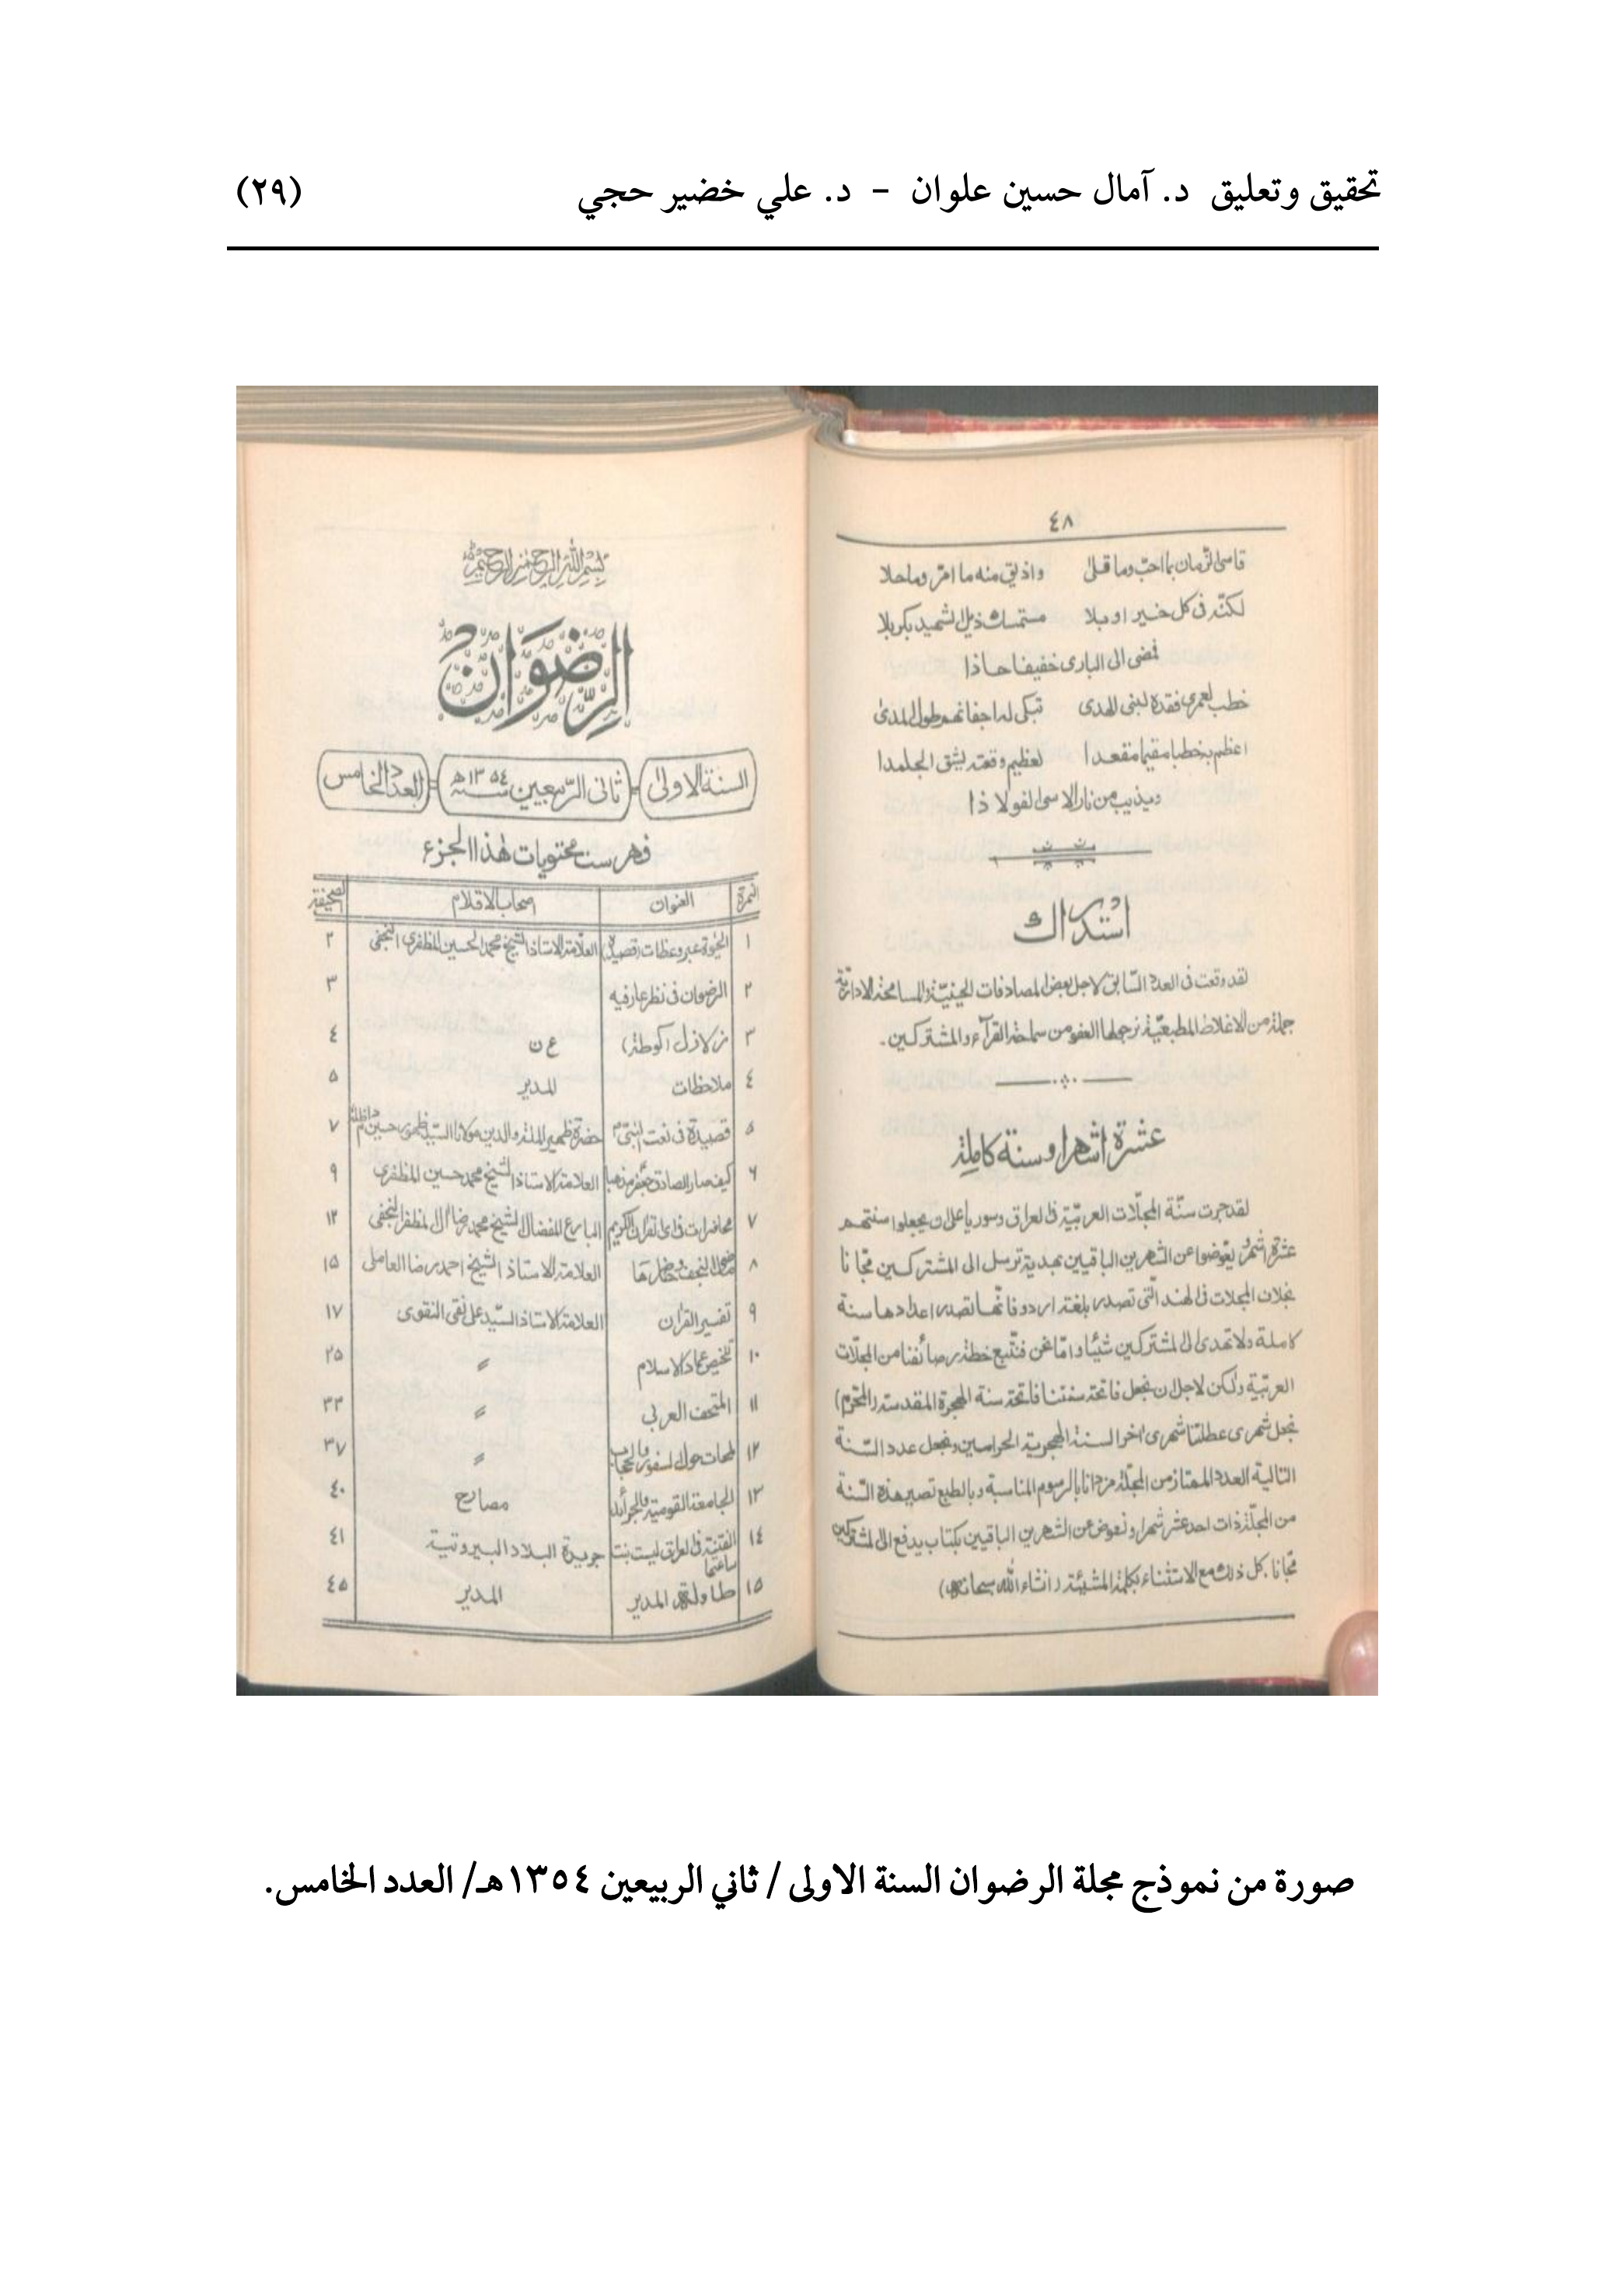 تحقيق وتعليق د. آمال حسين علوان - د. علي خضير حجي (٢٩)
٤٨
قاسى الزمان بما احب وما قلى واذيق منه ما امر وما حلا
لكنه فى كل خير او بلا مستمسك ذيل الشهيد بكربلا
فمضى الى البارى خفيفا حاذا
خطب لعمرى فقده لبنى الهدى تبكى له اجفانهم طول المدى
اعظم بخطبا مقيما مقعدا لعظيم وقعته يشق الجلمدا
ويذيب من نار الاسى الفولاذا
استدراك
لقد وقعت فى العدد السابق لاجل بعض المصادفات الحينية والمسامحة الادارية
جملة من الاغلاط المطبعية نرجو لها العفو من سماحة القرآء والمشتركين.
عشرة اشهر او سنة كاملة
لقد جرت سنة المجلات العربية فى العراق وسوريا على ان يجعلوا سنتهم
عشرة اشهر ويعوضوا عن الشهرين الباقيين بهدية ترسل الى المشتركين مجانا
بخلاف المجلات فى الهند التى تصدر بلغة اردو فانها تصدر اعدادها سنة
كاملة ولا تهدى الى المشتركين شيئا واما نحن فنتبع خطة رصائفنا من المجلات
العربية ولكن لاجل ان نجعل فاتحة سنتنا فاتحة سنة الهجرة المقدسة (المحرم)
نجعل شهرى عطلتنا شهرى اخر السنة الهجرية الحرامين ونجعل عدد السنة
التالية العدد الممتاز من المجلة مزدانا بالرسوم المناسبة وبالطبع تصير هذه السنة
من المجلة ذات احد عشر شهرا ونعوض عن الشهرين الباقيين بكتاب يدفع الى المشتركين
مجانا. كل ذلك مع الاستثناء بكلمة المشيئة (انشاء الله سبحانه)
بسم الله الرحمن الرحيم
الرضوان
السنة الاولى ثانى الربيعين سنة ١٣٥٤ھ العدد الخامس
فهرست محتويات هذا الجزء
النمرة العنوان اصحاب الاقلام الصحيفة
١ الحيوة عبر وعظات (قصيدة) العلامة الاستاذ الشيخ محمد الحسين المظفرى النجفى ٢
٢ الرضوان فى نظر عارفيه ٣
٣ زلازل (كوطة) ع ن ٤
٤ ملاحظات المدير ٥
٥ قصيدة فى نعت النبى حضرة ظهير الملة والدين مولانا السيد ظهور حسين دام ظله ٧
٦ كيف صار الصادق جعفر مذهبا العلامة الاستاذ الشيخ محمد حسين المظفرى ٩
٧ محاضرات فى اى القران الكريم البارع المفضال الشيخ محمد رضا ال المظفر النجفى ١٢
٨ ماضى النجف وحاضرها العلامة الاستاذ الشيخ احمد رضا العاملى ١٥
٩ تفسير القران العلامة الاستاذ السيد على نقى النقوى ١٧
١٠ تلخيص عماد الاسلام 〃 ٢٥
١١ المتحف العربى 〃 ٣٣
١٢ لمحات حول السفور والحجاب 〃 ٣٧
١٣ الجامعة القومية والجرائد مصارح ٤٠
١٤ الفتنة فى العراق ليست بنت ساعتها جريدة البلاد البيروتية ٤١
١٥ طاولة المدير المدير ٤٥
صورة من نموذج مجلة الرضوان السنة الاولى / ثاني الربيعين ١٣٥٤هـ/ العدد الخامس.